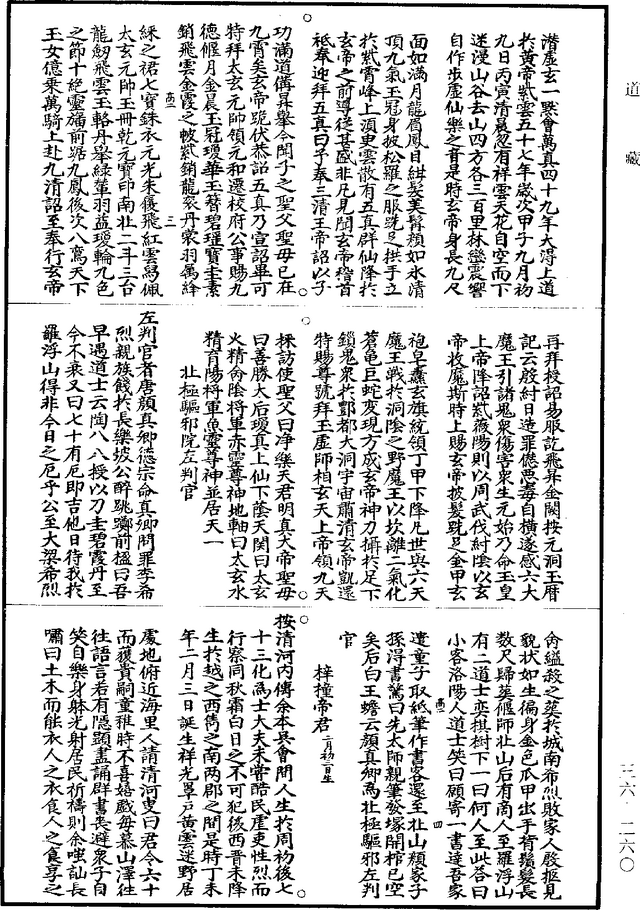 道藏
潜虛玄一默會萬真四十九年大溥上道
於黃帝紫雲五十七年歲次甲子九月初
九日丙寅清晨忽有祥雲天花自空而下
迷漫山谷去山四方各三百里林巒震響
自作步虛仙樂之音是時玄帝身長九尺
面如滿月龍眉鳳目紺髮美髯顏如氷清
頂九氣玉冠身披松羅之服跣足拱手立
於紫霄峰上須臾雲散有五真群仙降於
玄帝之前導從甚盛非凡見聞玄帝稽首
祗奉迎拜五真曰予奉三清玉帝詔以子
功滿道備昇舉今聞子之聖父聖母已在
九霄矣玄帝跪伏恭諾五真乃宣詔畢可
特拜太玄元帥領元和遷校府公事賜九
德偃月金晨玉冠瓊華玉簪碧瑤寶圭素
銷飛雲金霞之帔紫銷龍衮丹裳羽屬絳
綵之裙七寶銖衣元光朱履飛紅雲舄佩
太玄元帥玉冊乾元寶印南北二斗三台
龍劒飛雲玉輅丹轝綠輦羽蓋瓊輪九色
之節十絕靈旛前嘯九鳳後次八鸞天丁
玉女億乘萬騎上赴九清詔至奉行玄帝
再拜授詔易服訖飛昇金闕按元洞玉曆
記云殷紂日造罪愆惡毒自橫遂感六大
魔王引諸鬼衆傷害衆生元始乃命玉皇
上帝降詔紫薇陽則以周武伐紂陰以玄
帝收魔斯時上賜玄帝披髮跣足金甲玄
袍皂纛玄旗統領丁甲下降凡世與六天
魔王戰於洞陰之野魔王以坎離二氣化
蒼龜巨蛇變現方成玄帝神力攝於足下
鎖鬼衆於酆都大洞宇宙肅清玄帝凱還
特賜尊號拜玉虛師相玄天上帝領九天
採訪使聖父曰淨樂天君明真大帝聖母
曰善勝太后瓊真上仙下蔭天関曰太玄
火精㑹陰將軍赤靈尊神地軸曰太玄水
精育陽將軍黑靈尊神並居天一
北極驅邪院左判官
左判官者唐顏真卿德宗命真卿問罪李希
烈親族餞於長樂坡公醉跳躑前楹曰吾
早遇道士云陶八八授以刀圭碧霞丹至
今不衰又曰七十有厄即吉他日待我於
羅浮山得非今日之厄乎公至大梁希烈
命縊殺之葬於城南希烈敗家人啟柩見
貌狀如生徧身金色爪甲出手背鬚髮長
數尺歸葬偃師北山後有商人至羅浮山
有二道士奕棋樹下一曰何人至此荅曰
小客洛陽人道士笑曰顧寄一書達吾家
遣童子取紙筆作書客還至北山顏家子
孫得書驚曰先太師親筆發塚開棺已空
矣后白玉蟾云顏真卿爲北極驅邪左判
官
梓橦帝君二月初三日生
按清河内傳余本吳會間人生於周初後七
十三化爲士大夫未嘗酷民虐吏性烈而
行察同秋霜白日之不可犯後西晋末降
生於越之西雋之南两郡之間是時丁未
年二月三日誕生祥光罩戶黄雲迷野居
處地俯近海里人請清河叟曰君今六十
而獲貴嗣童稚時不喜嬉戲每慕山澤往
往語言若有隱顯晝誦群書夜避衆子自
笑自樂身躰光射居民祈禱則余嗤訕長
嘯曰土木而能衣人之衣食人之食享之
三六・二六〇